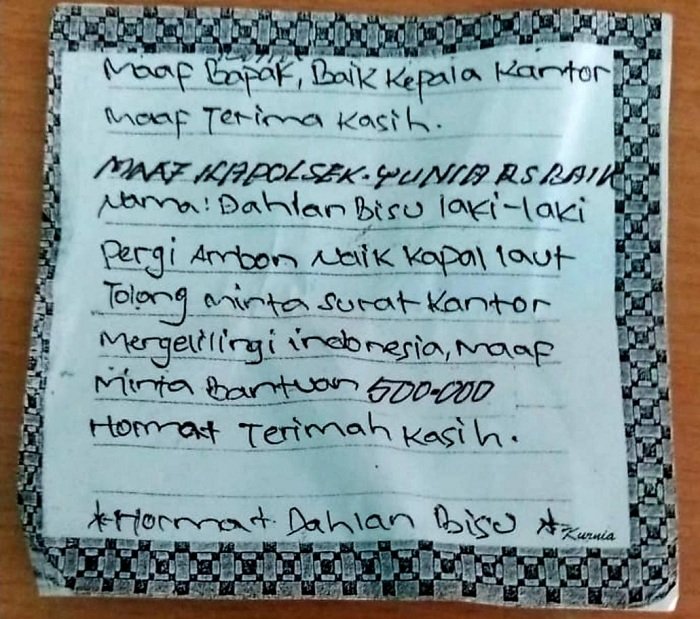 Maaf Bapak, Baik Kepala Kantor
Maaf Terima Kasih.
MAAF KAPOLSEK. YUNIA RS BAIK
Nama: Dahlan Bisu laki-laki
Pergi Ambon Naik Kapal laut
Tolong Minta Surat Kantor
Mergelilingi indonesia, Maaf
Minta Bantuan 500-000
Hormat Terimah Kasih.
*Hormat Dahlan Bisu *
Kurnia